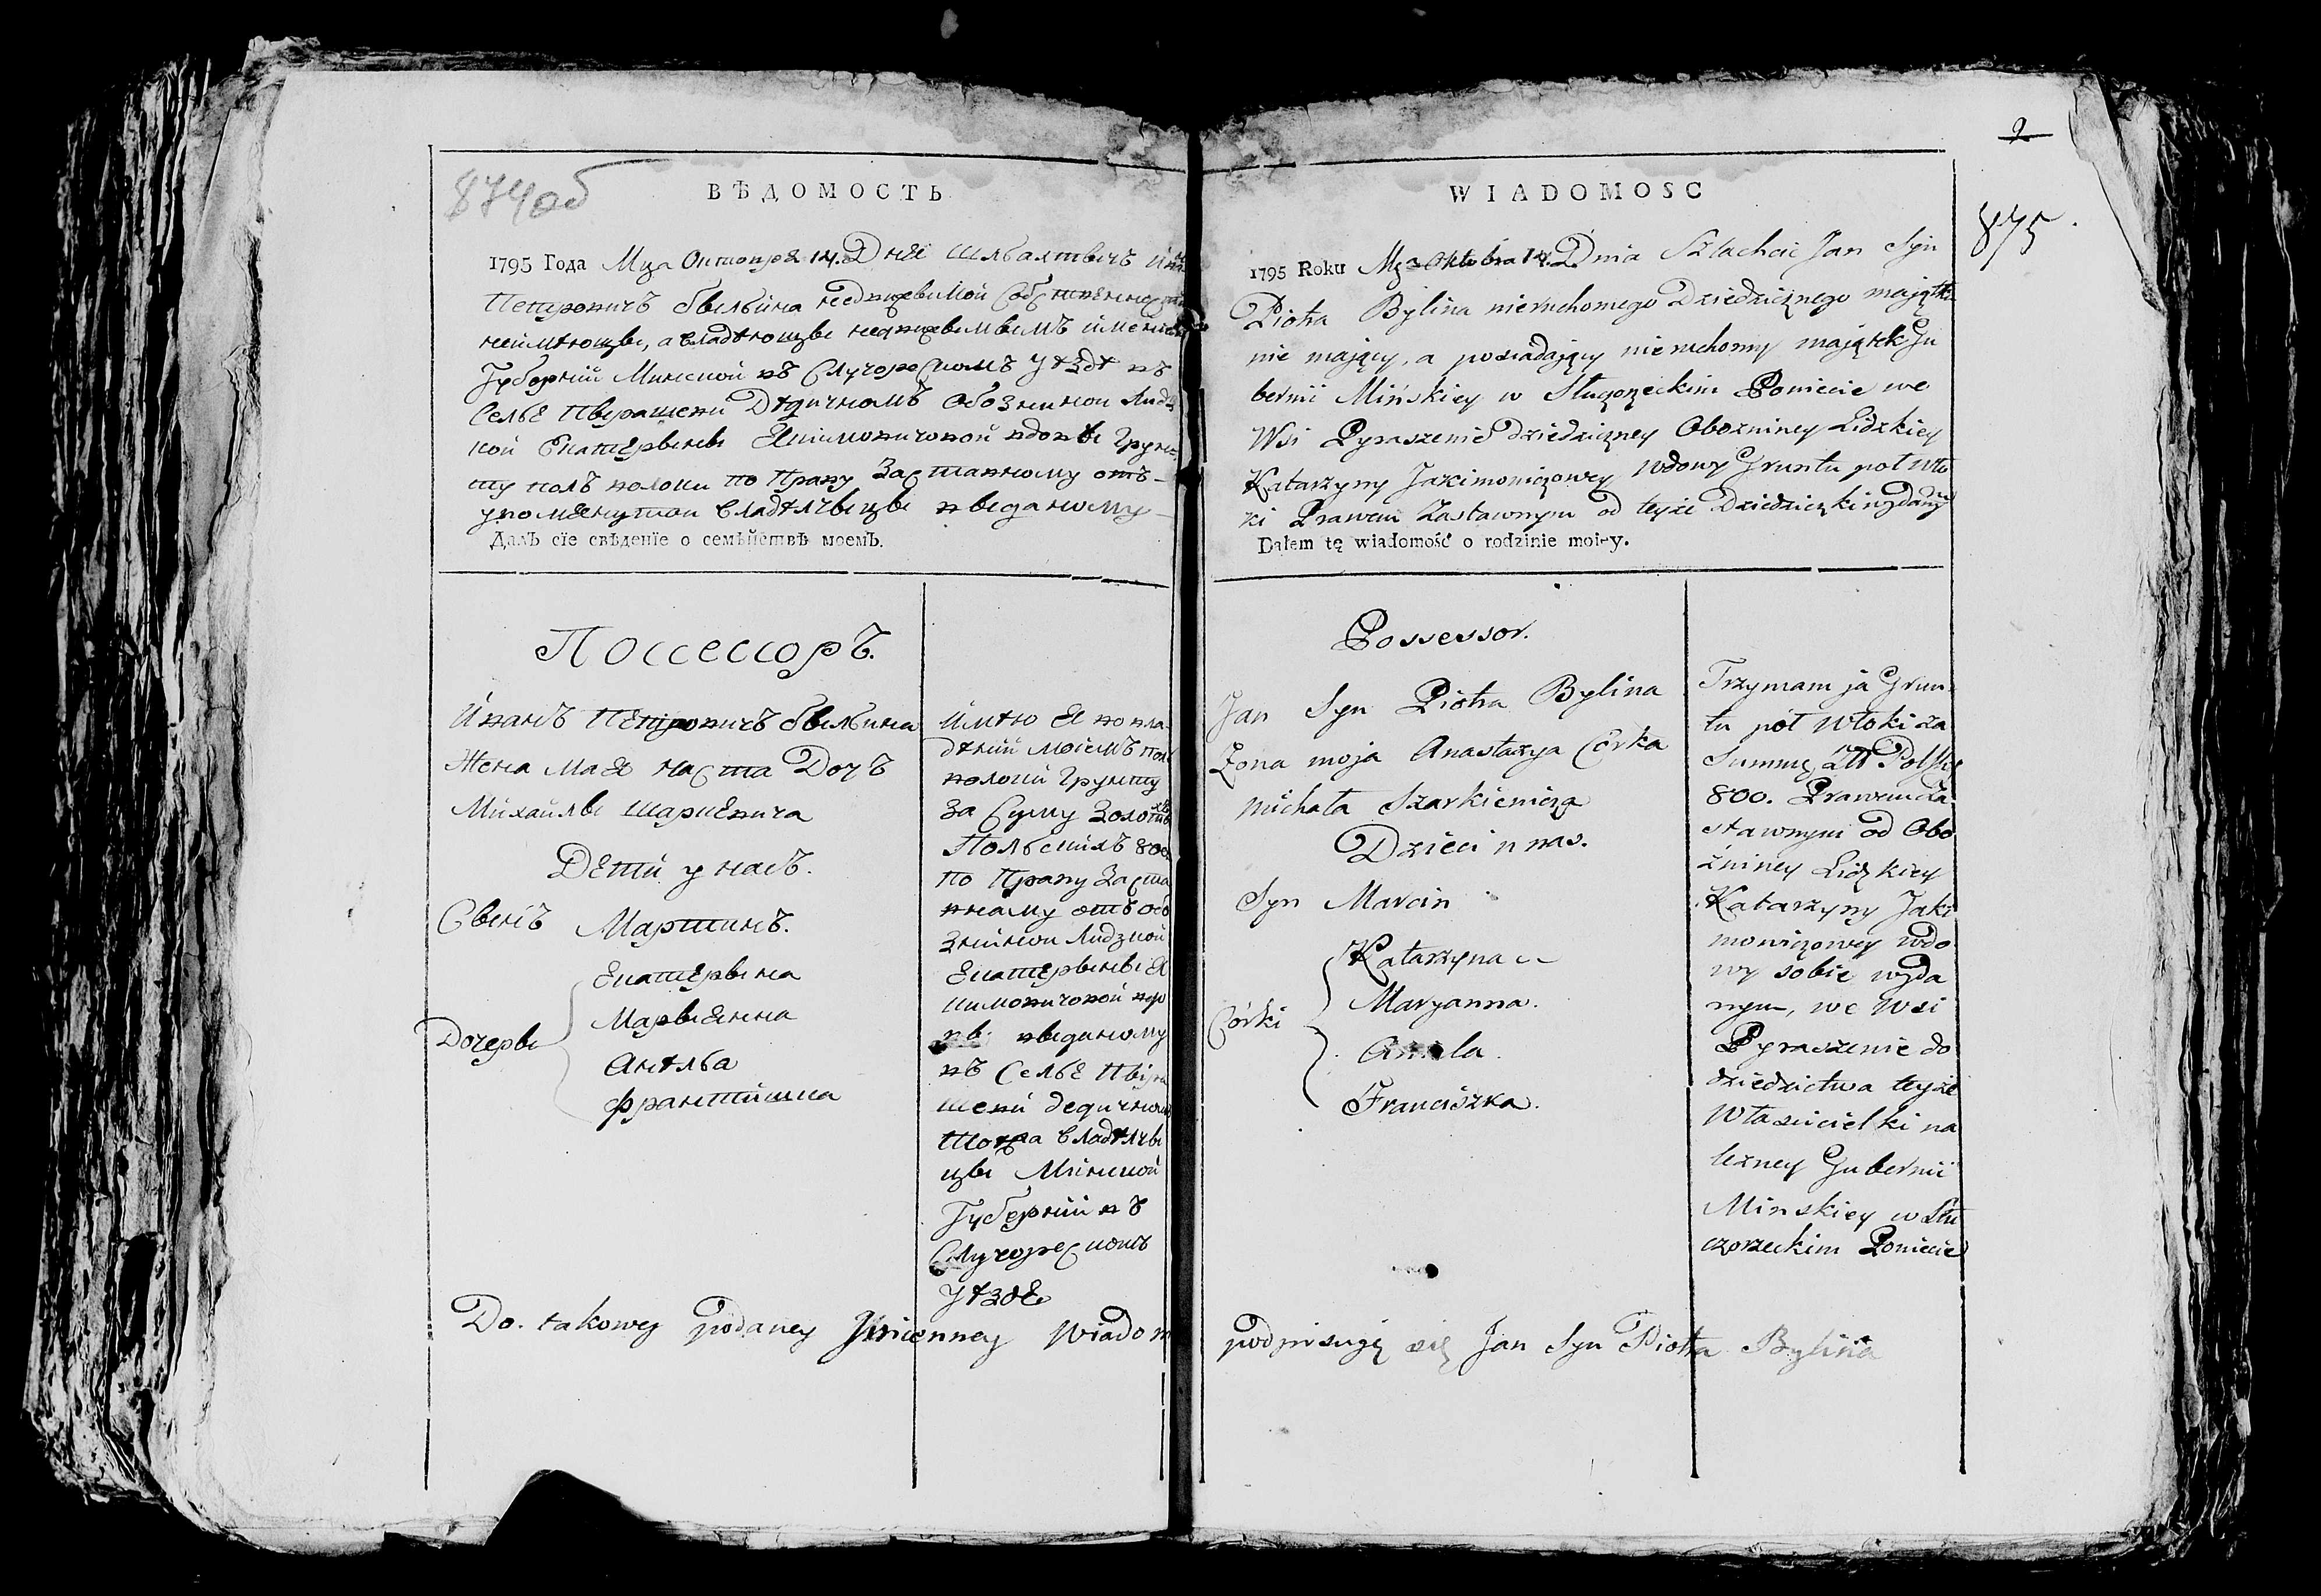 874об
ВѢДОМОСТЬ
1795 Года Мца Октопря 14. Дня Шльахтвичъ
Петровичъ Быльина недвижевимой
неимѣющы, а владѣющы
Губерний Минской въ Случорецкомъ Уѣздѣ въ
Сельѣ Пырашени Дѣдичномъ Обозниной
кой Екатерыны Якимовичовой вдовы
ту полъ волоки по Праву Заставному отъ
упомянутой владѣлыцы выданому
Далъ сїе свѣденїе о семѣйствѣ моемъ.
Поссессоръ.
Иванъ Петровичъ Быльина
Жена Мая Наста Дочъ
Михайлы Шаркевича
Дети у насъ.
Сынъ Мартинъ.
Дочеры
Екатерына
Марыянна
Анѣльа
Франтишка
Имѣю я во вла
дѣний моемъ пол
волоки Грунту
за Суму Золотых
Польских 800
по Праву Заста
вному отъ Обо
зниной Лидзкой
Екатерыны Я
кимовичовой вдо
вы выданому
въ Сельѣ Пыра
шени дедичном
тогжа владѣлы
цы Минской
Губерний въ
Случорецкомъ
Уѣздѣ
Do takowey podaney Jmienney Wiadom
2
875
WIADOMOSC
1795 Roku Mca Oktobra 14. Dnia Szlachcic Jan Syn
Piotra Bylina nieruchomego Dziedzicznego majątk
nie mający, a posiadający nieruchomy majątek Gu
bernii Mińskiey w Słuczorzeckim Powiecie we
Wsi Pyraszenie dziedziczney Oboźniney Lidzkiey
Katarzyny Jakimowiczowey Wdowy Gruntu poł Wło
ki Prawem Zastawnym od teyże Dziedziczki wydany
Dałem tę wiadomość o rodzinie moiey.
Possessor.
Jan Syn Piotra Bylina
Zona moja Anastazya Córka
Michała Szarkiewicza
Dzieci u nas.
Syn Marcin
Córki
Katarzyna
Maryanna.
Aniela.
Franciszka.
Trzymam ja Grun
tu pół Włoki za
Summę Złł Polsk
800. Prawem Za
stawnym od Obo
źniney Lidzkiey
Katarzyny Jaki
mowiczowey wdo
wy sobie wyda
nym, we Wsi
Pyraszenie do
dziedzictwa teyże
Własicielki na
leżney Gubernii
Minskiey w Słu
czorzeckim Powiecie
podpisuję się Jan Syn Piotra Bylina